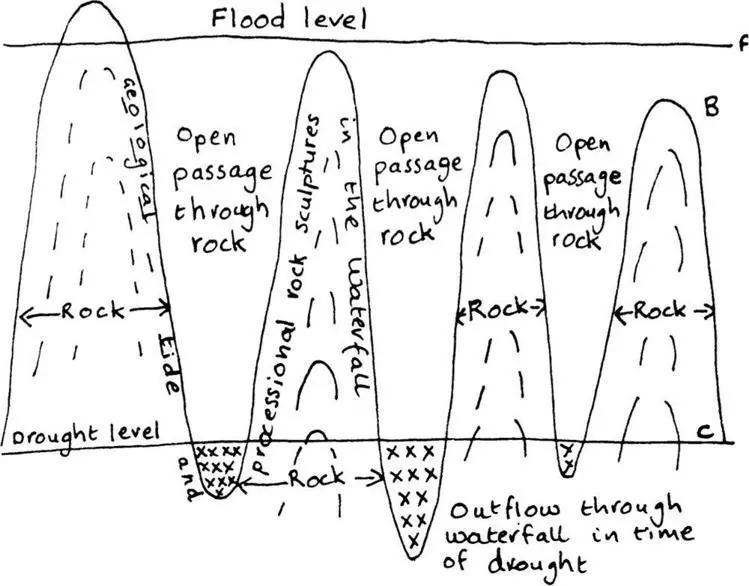 Flood level
F
B
aeological tide and
Open
passage
through
rock
processional rock sculptures
in the waterfall
Open
passage
through
rock
Open
passage
through
rock
Rock
Rock
Rock
Drought level
C
Rock
Outflow through
waterfall in time
of drought